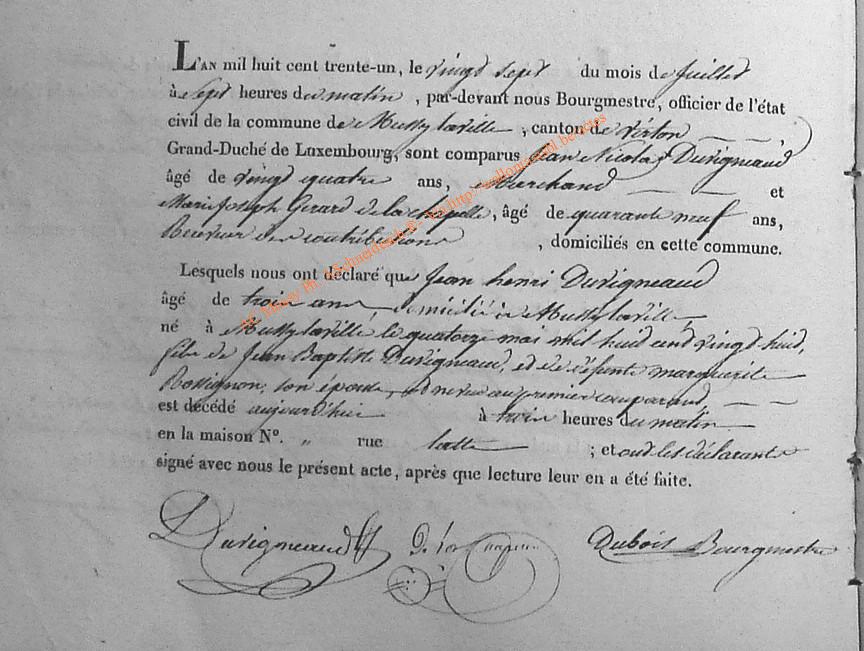 L'AN mil huit cent trente-un, le vingt sept du mois de juillet
à sept heures du matin, par-devant nous Bourgmestre, officier de l'état
civil de la commune de Mussy laville, canton de virton
Grand-Duché de Luxembourg, sont comparus Jean Nicolas Duvigneaud
âgé de vingt quatre ans, Marchand et
Marie Joseph Gerard de la chapelle, âgé de quarante neuf ans,
Receveur des contributions, domiciliés en cette commune.
Lesquels nous ont déclaré que Jean henri Duvigneaud
âgé de trois ans, domicilié à Mussy laville
né à Mussy laville, le quatorze mai mil huid cend vingt-huid,
fils de Jean Baptiste Duvigneaud, et de défunte marguerite
Rossignon, son épouse, et neveu au premier comparand,
est décédé aujourd'hui à trois heures du matin
en la maison N°. „ rue ; et ont les déclarants
signé avec nous le présent acte, après que lecture leur en a été faite.
Duvigneaud G. Dubois Bourgmestre